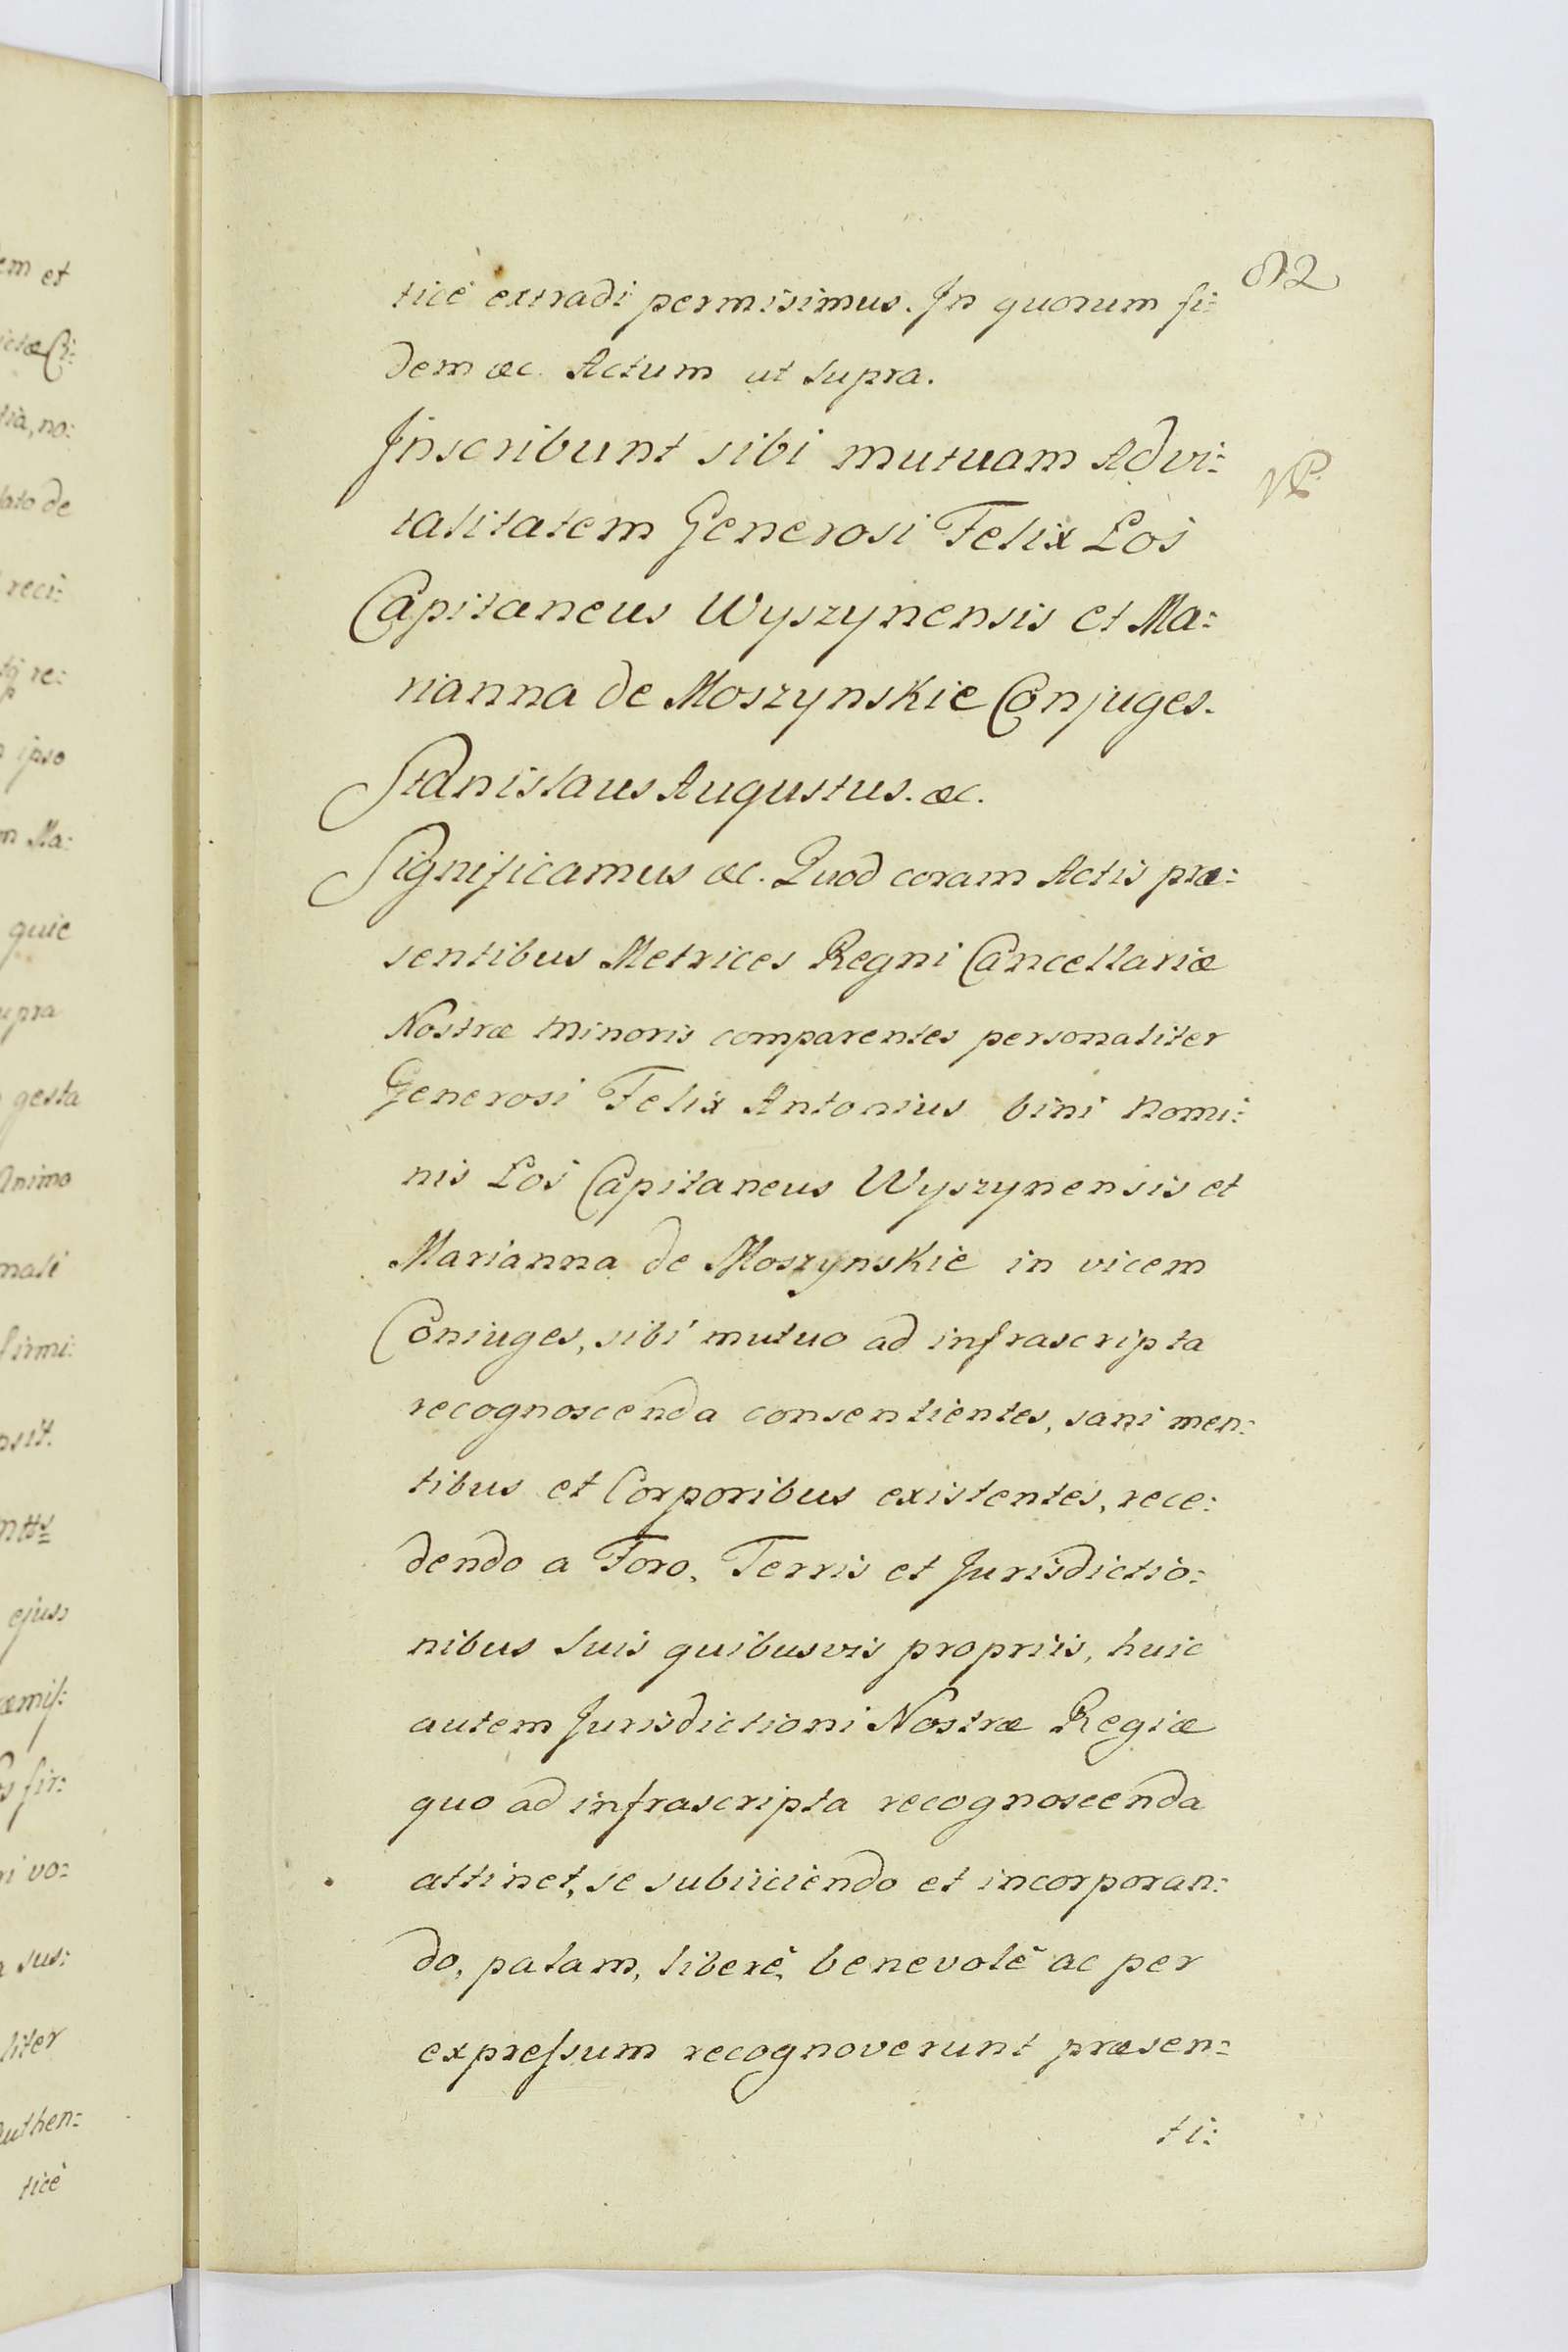 82
ticè extradi permisimus. Jn quorum fi:
dem &c. Actum ut supra.
Jnscribunt sibi mutuam Advi:
talitatem Generosi Felix Łoś
Capitaneus Wyszynensis et Ma:
rianna de Moszynskie Conjuges.
Stanislaus Augustus. &c.
Significamus &c. Quod coram Actis præ:
sentibus Metrices Regni Cancellariæ
Nostræ Minoris comparentes personaliter
Generosi Felix Antonius bini Nomi:
nis Łoś Capitaneus Wyszynensis et
Marianna de Moszynskie in vicem
Coniuges, sibi mutuo ad infrascripta
recognoscenda consentientes, sani men:
tibus et Corporibus existentes, rece:
dendo a Foro, Terris et Jurisdictio:
nibus suis quibusvis propriis, huic
autem Jurisdictioni Nostræ Regiæ
quo ad infrascripta recognoscenda
attinet, se subiiciendo et incorporan:
do, palam, liberè, benevolè ac per
expreſsum recognoverunt præsen:
ti:
em et
no:
lato de
reci:
re:
ipso
Ma:
quie
upra
gesta
Animo
mali
firmi:
nsit.
ejus
fir:
vo:
sus:
liter
Authen:
ticè